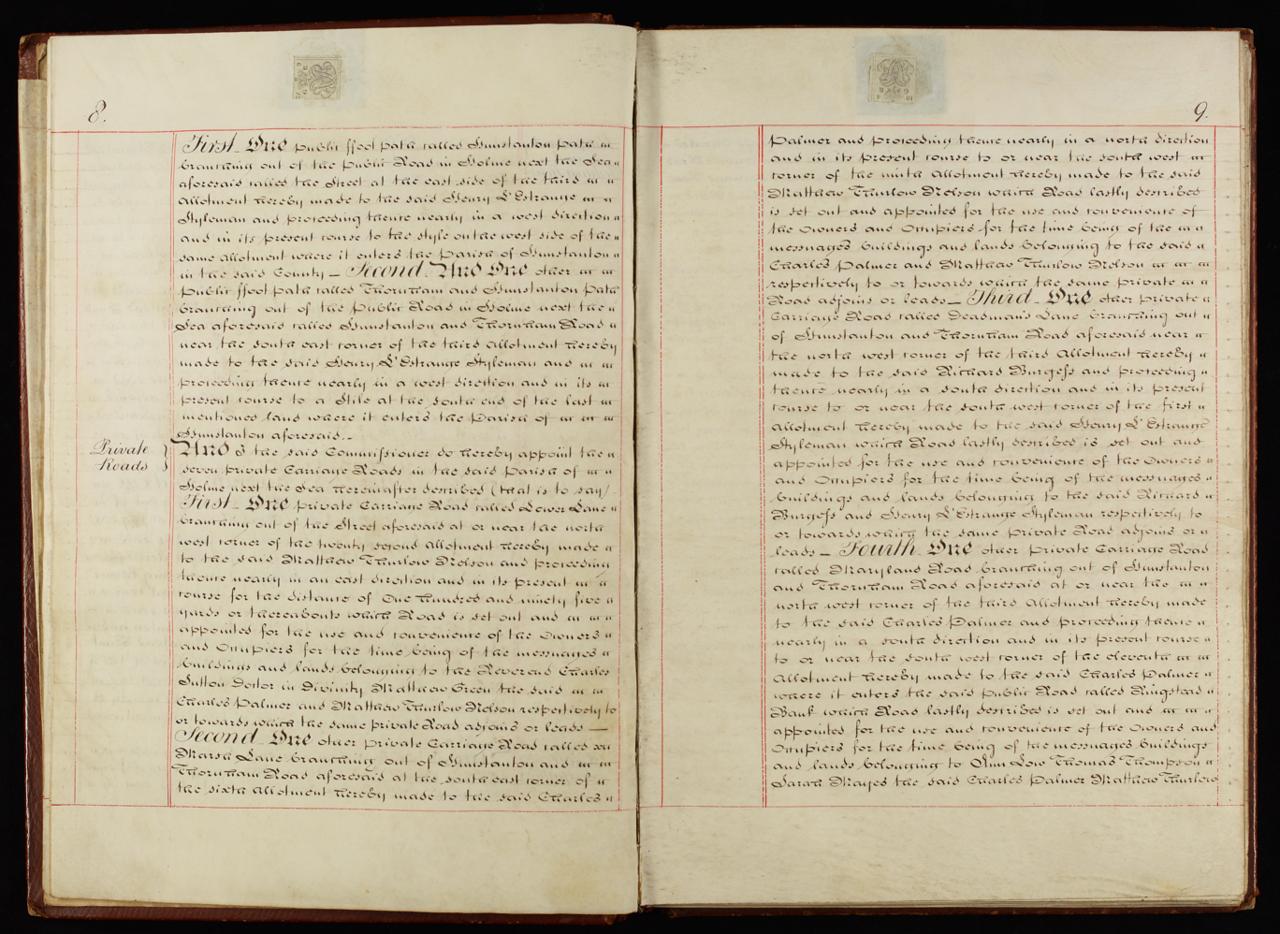 8.
First One public ffoot path called Hunstanton Path
branching out of the Public Road in Holme next the Sea
aforesaid called the Street at the east side of the third
allotment hereby made to the said Henry L'Estrange
Styleman and proceeding thence nearly in a west direction
and in its present course to the style on the west side of the
same allotment where it enters the Parish of Hunstanton
in the said County – Second And One other
public ffoot path called Thornham and Hunstanton Path
branching out of the Public Road in Holme next the
Sea aforesaid called Hunstanton and Thornham Road
near the south east corner of the third Allotment hereby
made to the said Henry L'Estrange Styleman and
proceeding thence nearly in a west direction and in its
present course to a Stile at the south end of the last
mentioned land where it enters the Parish of
Hunstanton aforesaid. –
Private
Roads
And I the said Commissioner do hereby appoint the
seven private Carriage Roads in the said Parish of
Holme next the Sea hereinafter described (that is to say)
First – One private Carriage Road called Lower Lane
branching out of the Street aforesaid at or near the north
west corner of the twenty second Allotment hereby made
to the said Matthew Thurlow Nelson and proceeding
thence nearly in an east direction and in its present
course for the distance of One hundred and ninety five
yards or thereabouts which Road is set out and
appointed for the use and convenience of the Owners
and Occupiers for the time being of the messuages
buildings and lands belonging to the Reverend Charles
Sutton Doctor in Divinity Matthew Green the said
Charles Palmer and Matthew Thurlow Nelson respectively to
or towards which the same private Road adjoins or leads —
Second – One other private Carriage Road called
Marsh Lane branching out of Hunstanton and
Thornham Road aforesaid at the south east corner of
the sixth Allotment hereby made to the said Charles
9.
Palmer and proceeding thence nearly in a north direction
and in its present course to or near the south west
corner of the ninth Allotment hereby made to the said
Matthew Thurlow Nelson which Road lastly described
is set out and appointed for the use and convenience of
the Owners and Occupiers for the time being of the
messuages buildings and lands belonging to the said
Charles Palmer and Matthew Thurlow Nelson
respectively to or towards which the same private
Road adjoins or leads – Third – One other private
Carriage Road called Deadman's Lane branching out
of Hunstanton and Thornham Road aforesaid near
the north west corner of the third Allotment hereby
made to the said Richard Burgess and proceeding
thence nearly in a south direction and in its present
course to or near the south west corner of the first
allotment hereby made to the said Henry L'Estrange
Styleman which Road lastly described is set out and
appointed for the use and convenience of the Owners
and Occupiers for the time being of the messuages
buildings and lands belonging to the said Richard
Burgess and Henry L'Estrange Styleman respectively to
or towards which the same private Road adjoins or
leads – Fourth One other private Carriage Road
called Maryland Road branching out of Hunstanton
and Thornham Road aforesaid at or near the
north west corner of the third Allotment hereby made
to the said Charles Palmer and proceeding thence
nearly in a south direction and in its present course
to or near the south west corner of the eleventh
Allotment hereby made to the said Charles Palmer
where it enters the said public Road called Ringstead
Bank which Road lastly described is set out and
appointed for the use and convenience of the Owners and
Occupiers for the time being of the messuages buildings
and lands belonging to Ann Low Thomas Thompson
Sarah Mayes the said Charles Palmer Matthew Thurlow